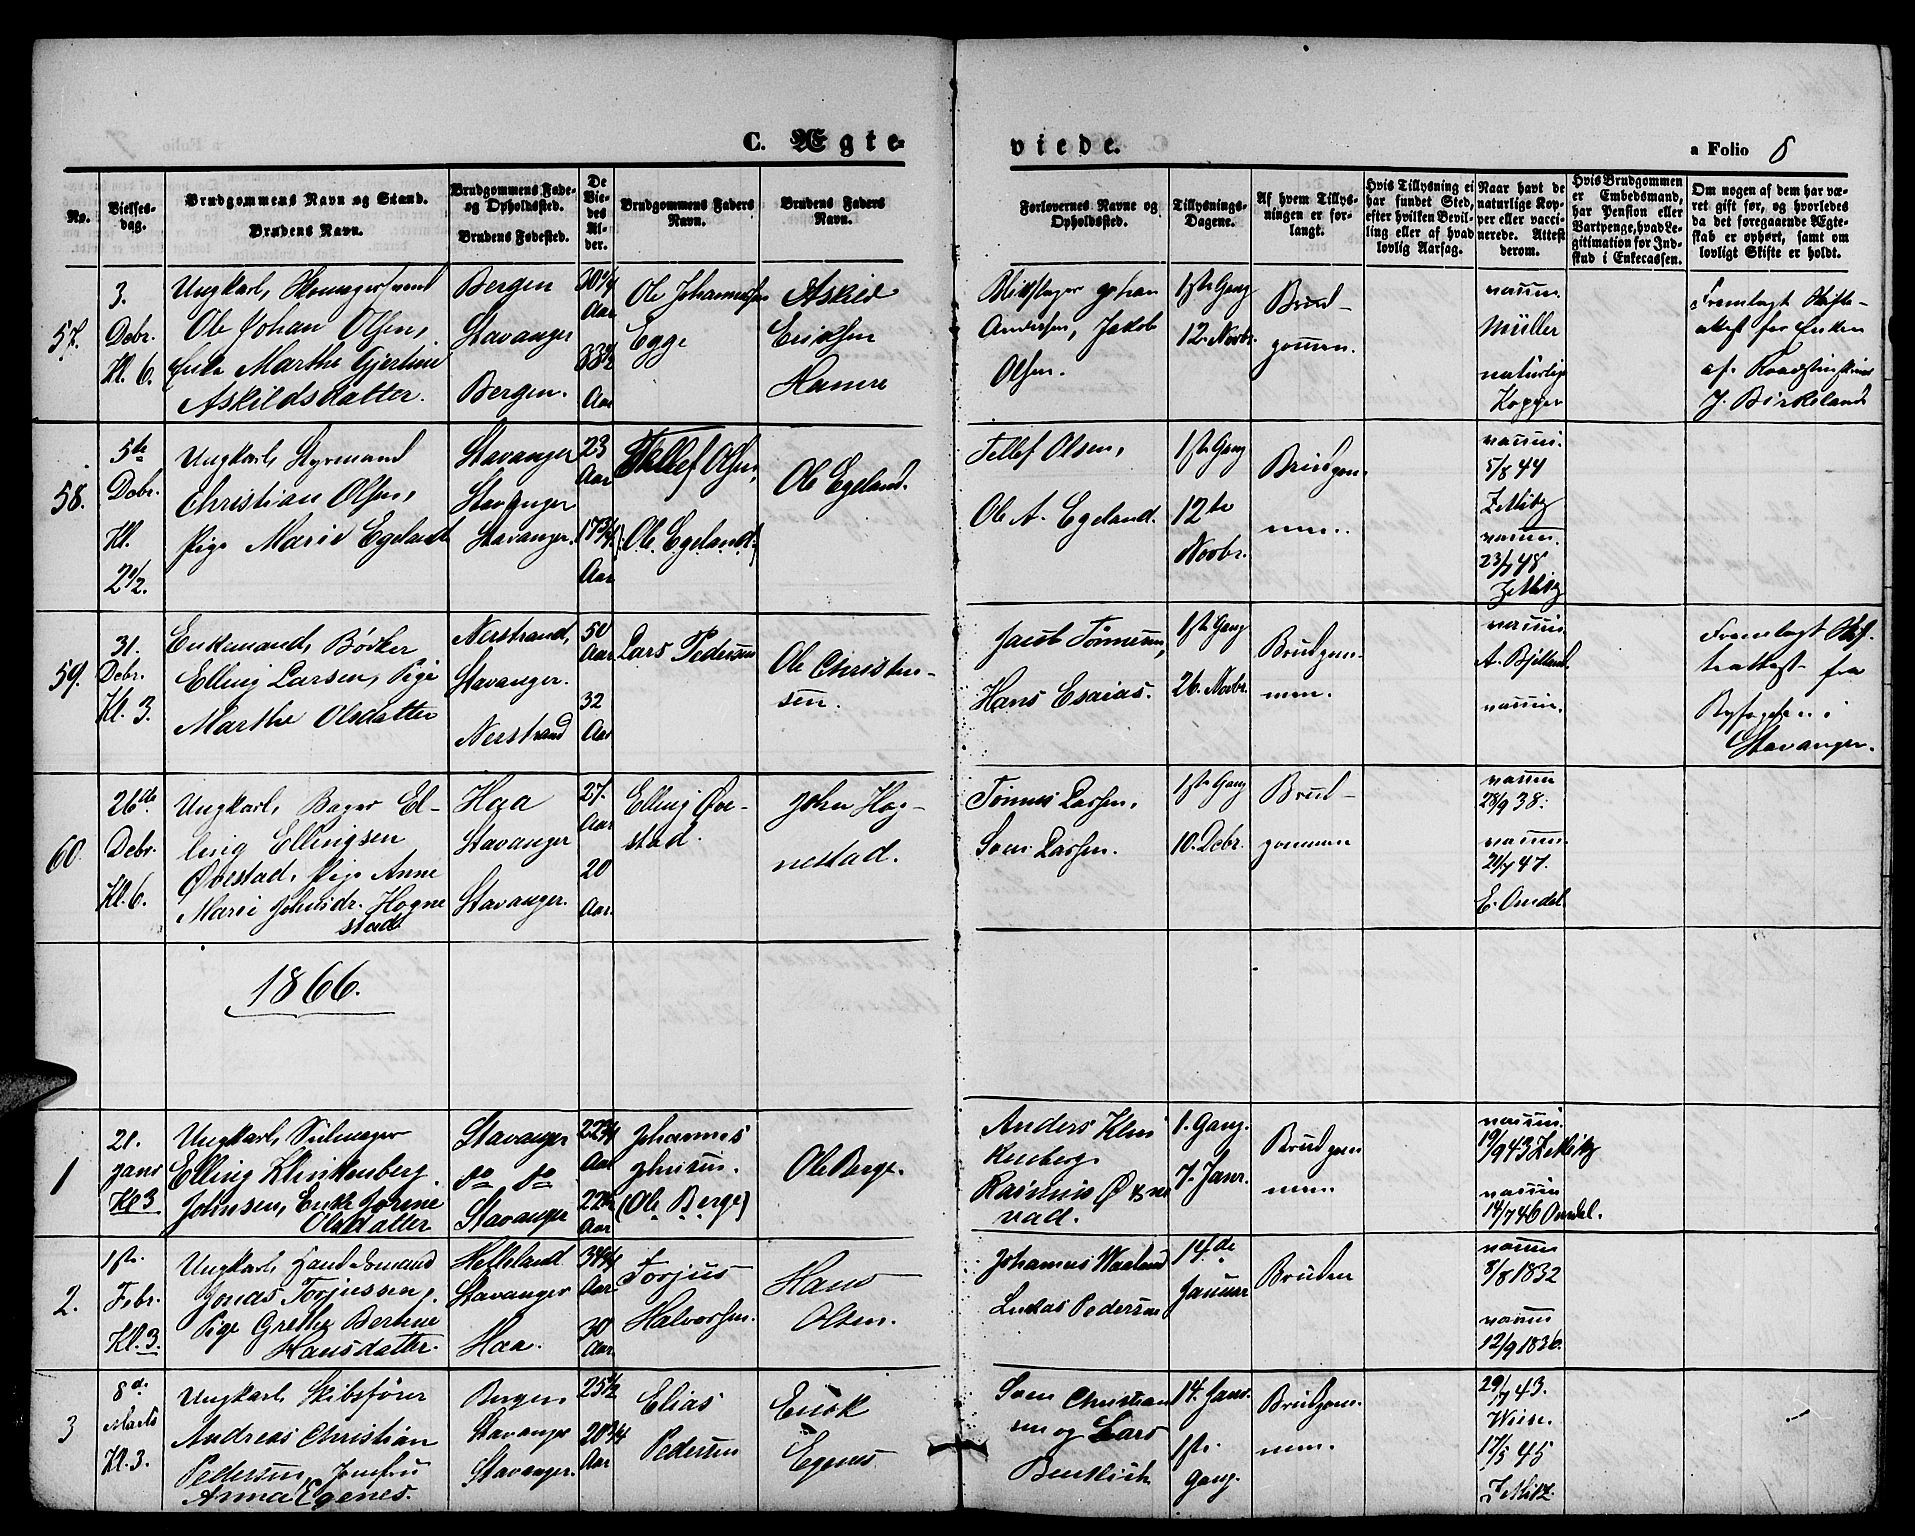 C. Ægte-
viede.
a Folio 8
No.
Vielses-
dag.
Brudgommens Navn og Stand.
Brudens Navn.
Brudgommens Føde-
og Opholdssted.
Brudens Fødested.
De
Vie-
des
Al-
der.
Brudgommens Faders
Navn.
Brudens Faders
Navn.
Forlovernes Navne og
Opholdssted.
Tillysnings-
Dagene.
Af hvem Tillys-
ningen er for-
langt.
Hvis Tillysning ei
har fundet Sted,
efter hvilken Bevil-
ling eller af hvad
lovlig Aarsag.
Naar havt de
naturlige Kop-
per eller vacci-
nerede. Attest
derom.
Hvis Brudgommen
er Embedsmand,
har Pension eller
Vartpenge, hvad Le-
gitimation for Ind-
skud i Enkecassen.
Om nogen af dem har væ-
ret gift før, og hvorledes
da det foregaaende Ægte-
skab er ophørt, samt om
lovligt Skifte er holdt.
57.
3.
Debr.
Kl. 6.
Ungkarl,
Ole Johan Olsen,
Enke Marthe Gjertine
Askildsdatter.
Bergen
Stavanger
Bergen.
30 1/4
Aar
33 1/2
Aar
Ole Johannessen
Egge
Askild
Eriksen
Hamre
Blikslager Johan
Andersen, Jakob
Olsen.
1ste Gang
12. Novbr.
Brud-
gommen.
vaccin.
Müller
naturlige
Kopper
Fremlagt Skifte-
attest for Enken
af
J. Birkeland
58.
5te
Debr.
Kl.
2 1/2.
Ungkarl, Styrmand
Christian Olsen,
Pige Marie Egeland
Stavanger
Stavanger
Stavanger.
23
Aar
17 3/4
Aar
Tellef Olsen,
(Ole Egeland)
Ole Egeland.
Tellef Olsen,
Ole A. Egeland.
1ste Gang
12te
Novbr.
Brudgom-
men.
vaccin.
5/8 44
Zetlitz
vaccin.
23/7 48
Zetlitz
59.
31.
Debr.
Kl. 3.
Enkemand, Bødker
Elling Larsen, Pige
Marthe Olsdatter
Nerstrand,
Stavanger.
Nerstrand
50
Aar
32
Aar
Lars Pedersen
Ole Christen-
sen.
Jacob Tønnesen,
Hans Esaias.
1ste Gang
26. Novbr.
Brudgom-
men.
vaccin.
A. Bjelland
vaccin.
Fremlagt Skif-
teattest fra
Byfogden i
Stavanger.
60.
26de
Debr.
Kl. 6.
Ungkarl, Bager El-
ling Ellingsen
Øvestad, Pige Anne
Marie Johnsdr. Hogne
stad
Haa
Stavanger
Stavanger.
27
Aar
20
Aar.
Elling Øve-
stad.
John Hog-
nestad.
Tønnes Larsen,
Sven Larsen.
1ste Gang
10. Debr.
Brud-
gommen
vaccin
28/9 38.
vaccin.
21/7 47.
E. Omdal
1866.
1
21.
Janr
Kl 3
Ungkarl, Seilmager
Elling Klinkenberg
Johnsen, Enke Jorine
Olsdatter
Stavanger
do do
Stavanger
22 3/4
Aar
22
Aar
Johannes
Johnsen.
(Ole Berge)
Ole Berge.
Anders Klin
kenberg
Rasmus Øvre
vad.
1. Gang.
7. Janr.
Brudgom
men.
vaccin.
19/9 43 Zetlitz
vaccin
14/7 46 Omdal.
2.
1ste
Febr.
Kl. 3.
Ungkarl,
Jonas Torjussen,
Pige Grethe Bertine
Hansdatter.
Helleland
Stavanger
Haa.
34
Aar.
30
Aar.
Torjus
Halvorsen.
Hans
Olsen.
Johannes Waaland
Lukas Pedersen
14de
Januar
Bruden
vaccin
8/8 1832
vaccin
12/9 1836.
3
8de
Marts
Kl. 3.
Ungkarl Skibsfører
Andreas Christian
Pedersen, Jomfru
Anna Egenes.
Bergen
Stavanger
Stavanger.
25 1/2
20 3/4
Aar
Elias
Pedersen
Erick
Egenes
Sven Christian
sen og Lars
14. Janr.
1ste
Gang.
Brudgom-
men.
29/7 43.
17/5 45
Zetlitz